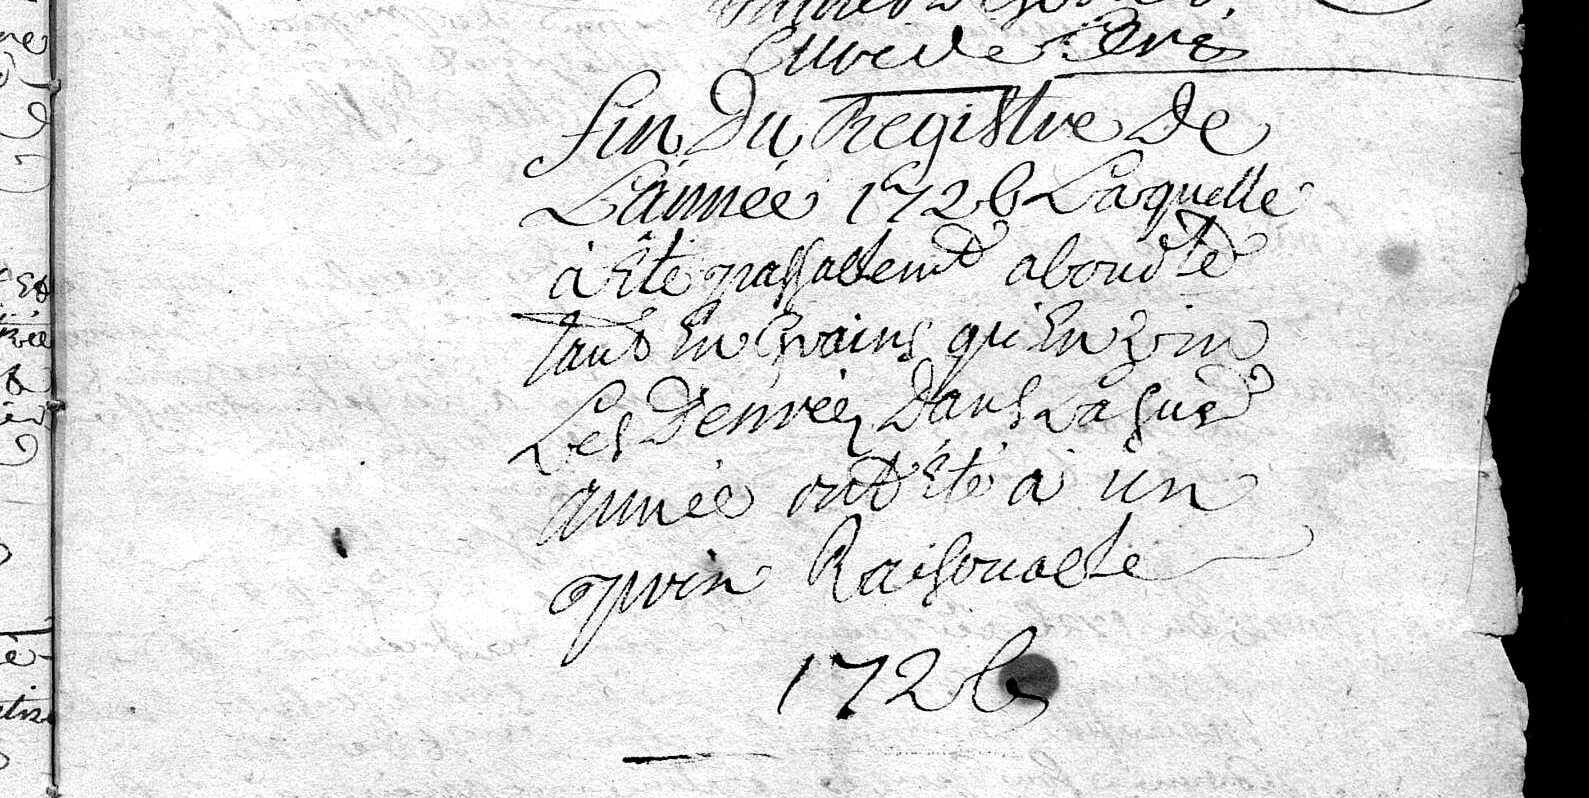 Curé de
fin Du Registre De
L'année 1726 Laquelle
à été passablemt abondte
tant En Grains qu'En vin
Les Denrées Dans La susd
année ont été à un
prix Raisonable
1726